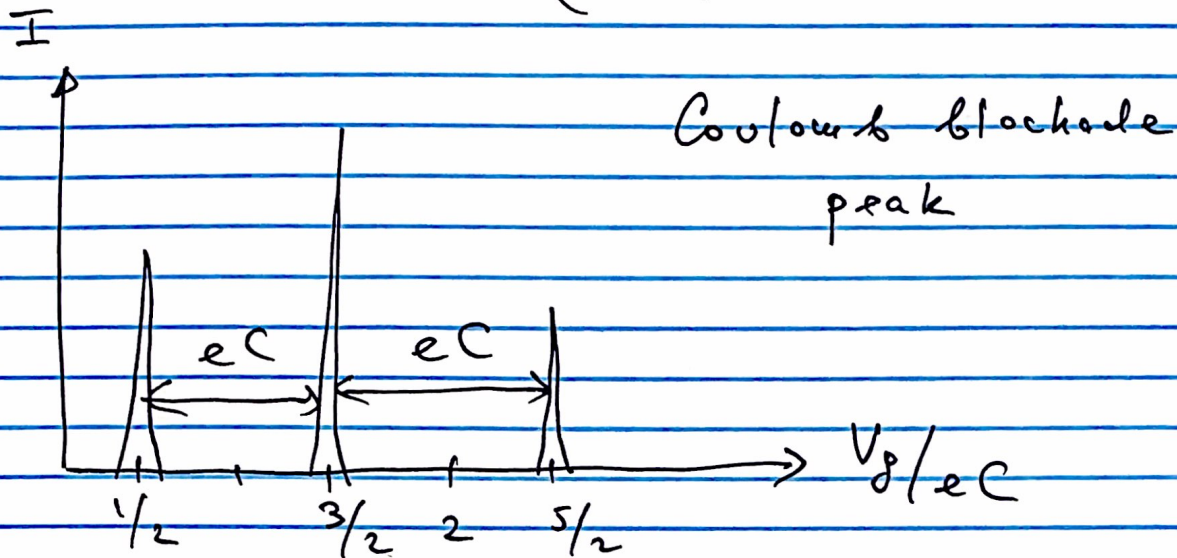 I
Coulomb blockade
peak
eC eC
Vg/eC
1/2 3/2 2 5/2